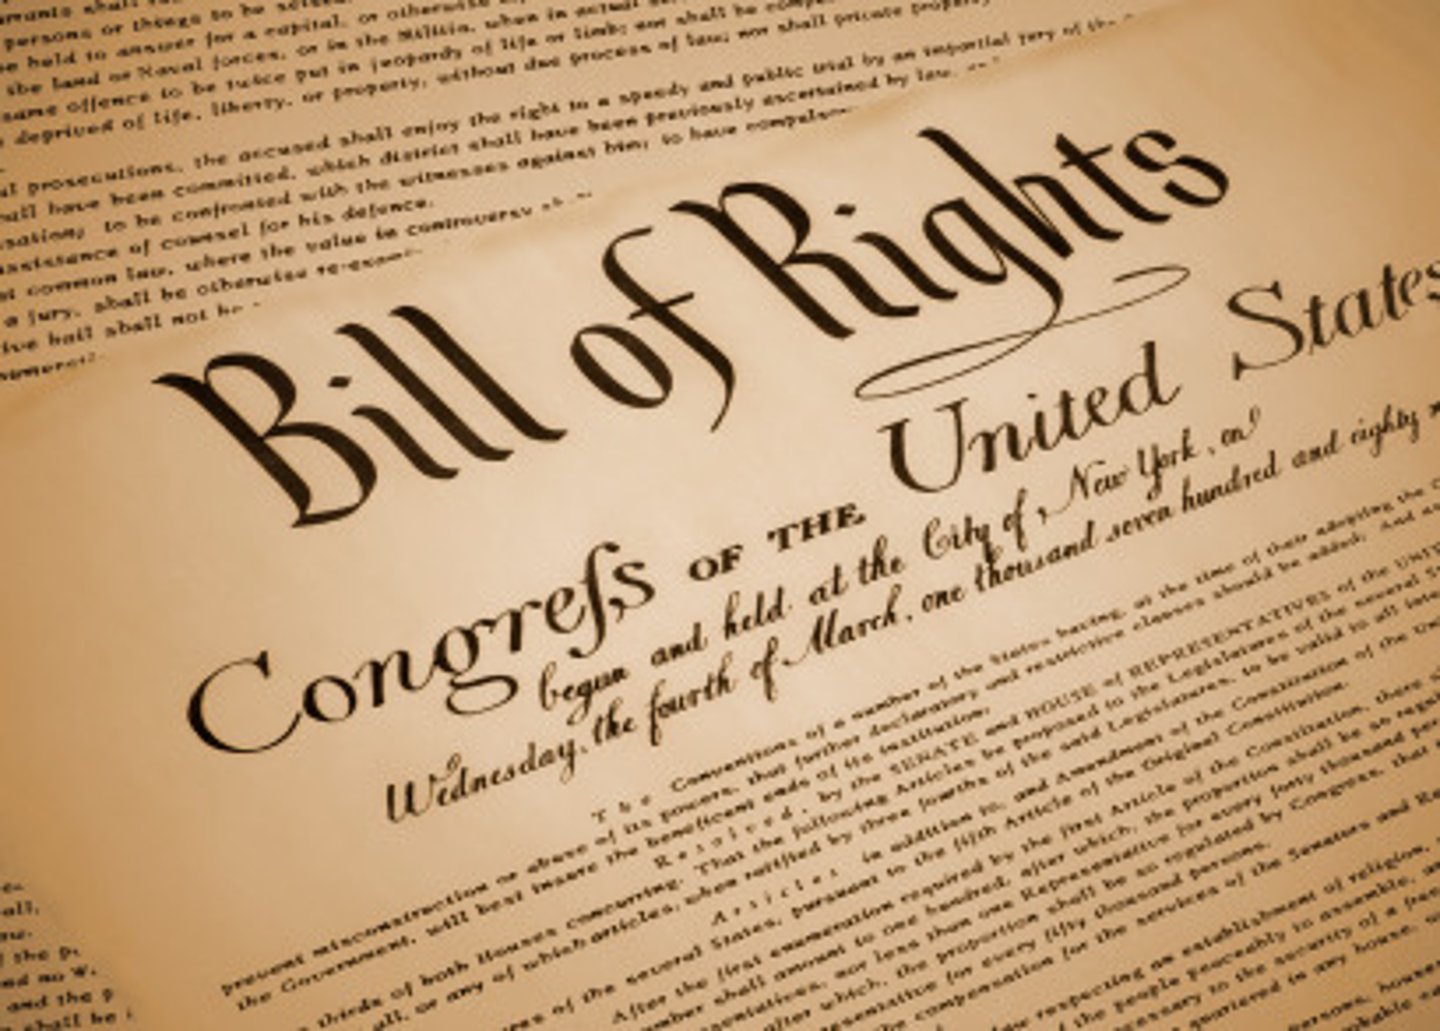 persons or things to be seized.
be held to answer for a capital, or otherwise
the land or Naval forces, or in the Militia, when in actual
same offence to be twice put in jeopardy of life or limb; nor shall be
deprived of life, liberty, or property, without due process of law; nor shall private property
prosecutions, the accused shall enjoy the right to a speedy and public trial by an impartial jury of the
shall have been committed, which district shall have been previously ascertained by law,
to be confronted with the witnesses against him; to have
assistance of counsel for his defence.
common law, where the value in controversy
a jury, shall be otherwise
bail shall not be
Bill of Rights
Congreſs OF THE United States
begun and held at the City of New York, on
Wednesday, the fourth of March, one thousand seven hundred and eighty
The Conventions of a number of the States having, at the time of their adopting the
prevent misconstruction or abuse of its powers, that further declaratory and restrictive clauses should be added: And
the Government, will best insure the beneficent ends of its institution;
Resolved, by the SENATE and HOUSE of REPRESENTATIVES of the
thirds of both Houses concurring, That the following Articles be proposed to the Legislatures of the several
all, or any of which articles, when ratified by three fourths of the said Legislatures, to be valid to all
Articles in addition to, and Amendment of the Constitution of the
of the several States, pursuant to the fifth Article of the Original Constitution.
After the first enumeration required by the first Article of the Constitution, there
number shall amount to one hundred, after which, the proportion shall be so
nor less than one Representative for every forty thousand
after which, the proportion shall be so regulated by Congress, that
for every fifty thousand persons.
compensation for the services of the Senators and
respecting an establishment of religion,
of the people peaceably to assemble,
to the security of a free
quartered in any house,
persons,